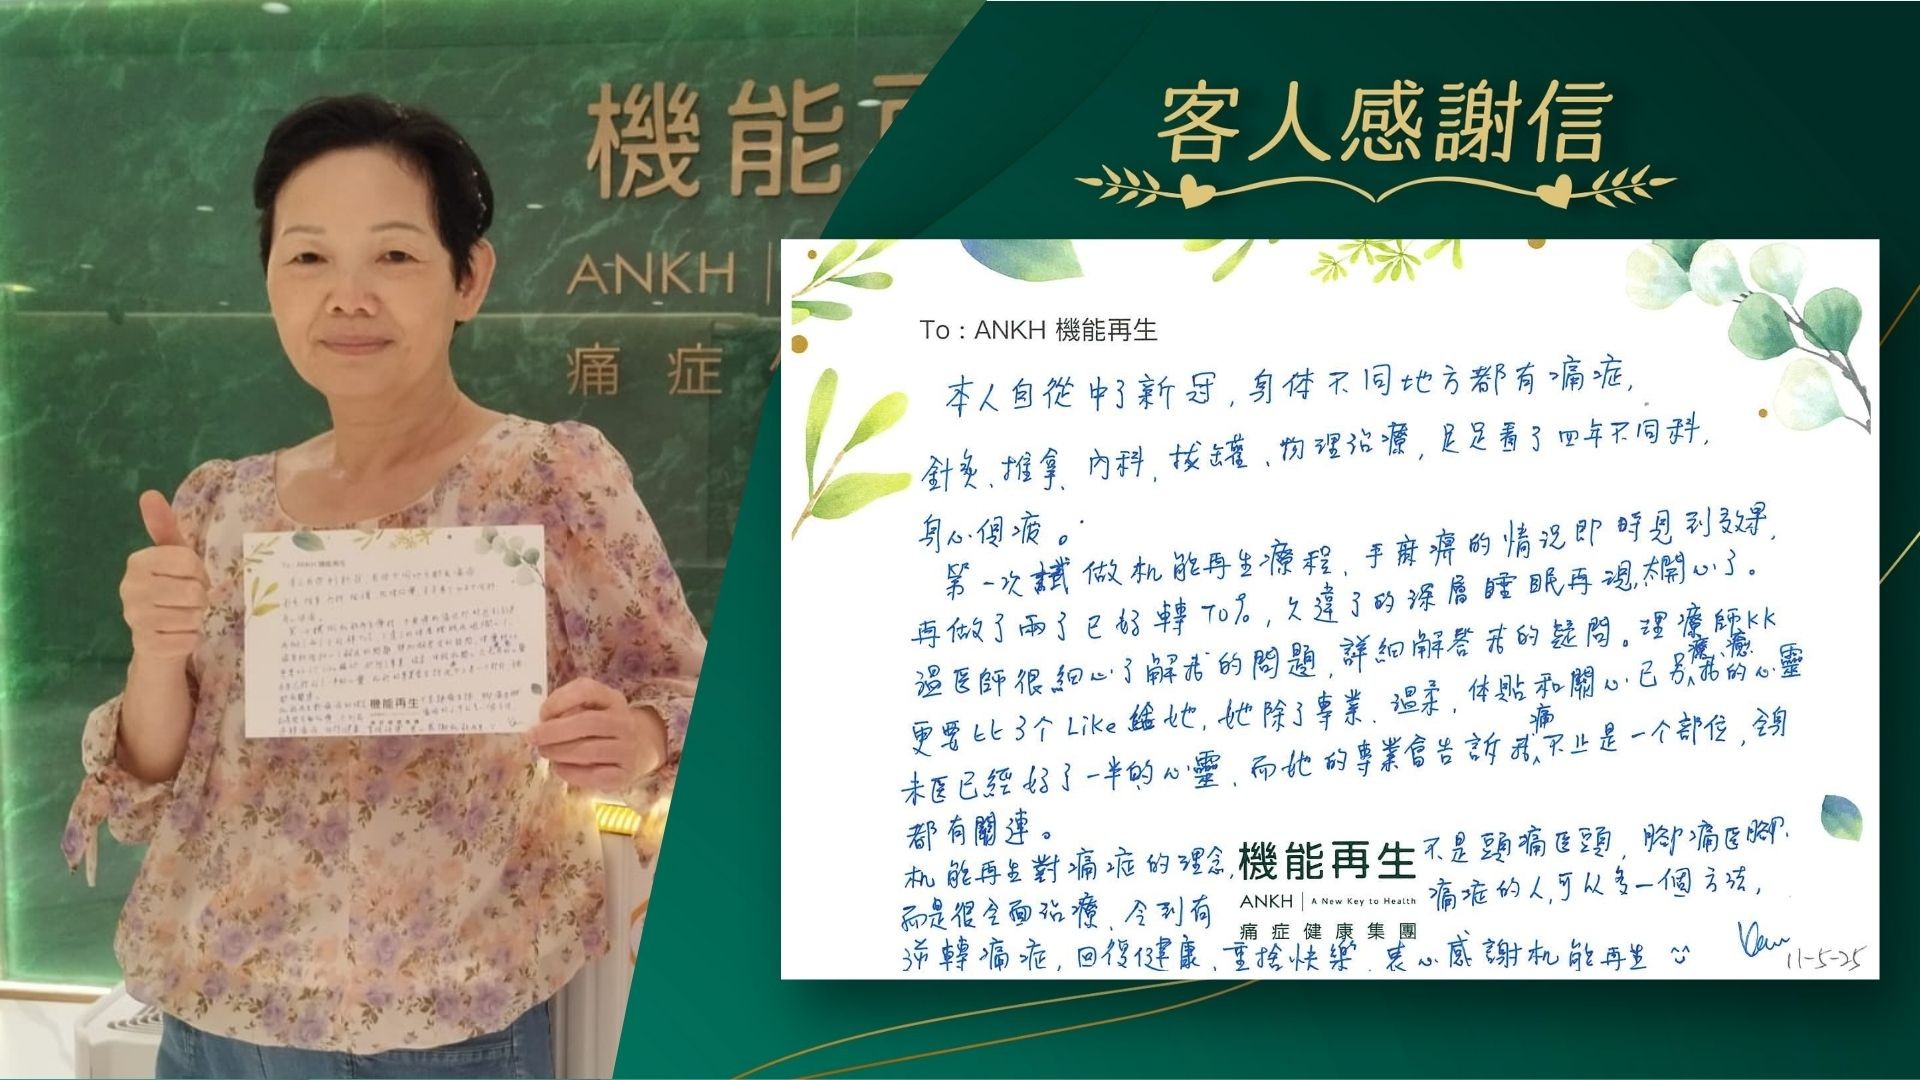 機能再
ANKH
痛症
客人感謝信
To : ANKH 機能再生
本人自從中了新冠,身体不同地方都有痛症,
針灸、推拿、內科,拔罐、物理治療,足足看了四年不同科,
身心俱疲。
第一次試做机能再生療程,手麻痹的情況即時見到效果,
再做了兩了已好轉70%,久違了的深層睡眠再現,太開心了。
溫医師很細心了解我的問題,詳細解答我的疑問。理療師KK
更要比3个Like給她,她除了專業、溫柔,体貼和關心已另我的心靈療癒
未医已經好了一半的心靈,而她的專業會告訴我痛不止是一个部位,全身
都有關連。
机能再生對痛症的理念,不是頭痛医頭,腳痛医腳,
而是很全面治療,令到有痛症的人,可以多一個方法,
逆轉痛症,回復健康、重捨快樂,衷心感謝机能再生
機能再生
ANKH | A New Key to Health
痛症健康集團
11-5-25